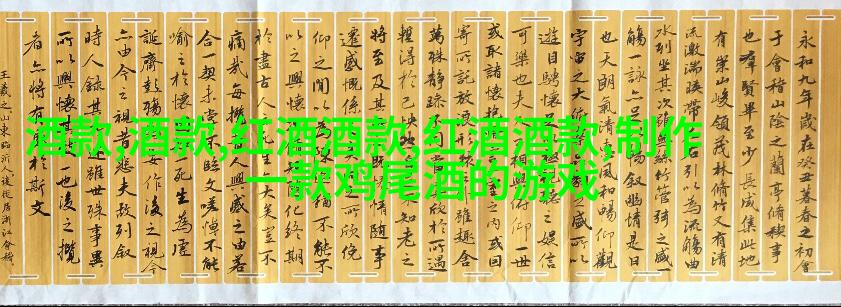 酒款,酒款,红酒酒款,红酒酒款,制作
一款鸡尾酒的游戏
永和九年歲在癸丑暮春之初會
于會稽山陰之蘭亭脩稧事
也群賢畢至少長咸集此地
有崇山峻領茂林脩竹又有清
流激湍暎帶左右引以為流觴曲
水列坐其次雖無絲竹管弦之盛一
觴一詠亦足以暢敘幽情是日
也天朗氣清惠風和暢仰觀
宇宙之大俯察品類之盛所以
遊目騁懷足以極視聽之娛信
可樂也夫人之相與俯仰一世
或取諸懷抱一室之內或因
寄所託放浪雖趣舍
萬殊靜躁不同欣於所遇
暫得於己快然不知老之
將至及其情隨事
遷感慨係之所欣俛
仰之間以為陳迹猶不能不
以之興懷化終期
於盡古人云死生亦大矣豈不
痛哉每攬昔人興感之由若
合一契未嘗不臨文嗟悼不能
喻之於懷死生為虛
誕齊彭殤為妄作後之視今
亦由今之視昔悲夫故列敘
時人錄其所述雖世殊事異
所以興懷其致一也後之攬
者亦將有感於斯文